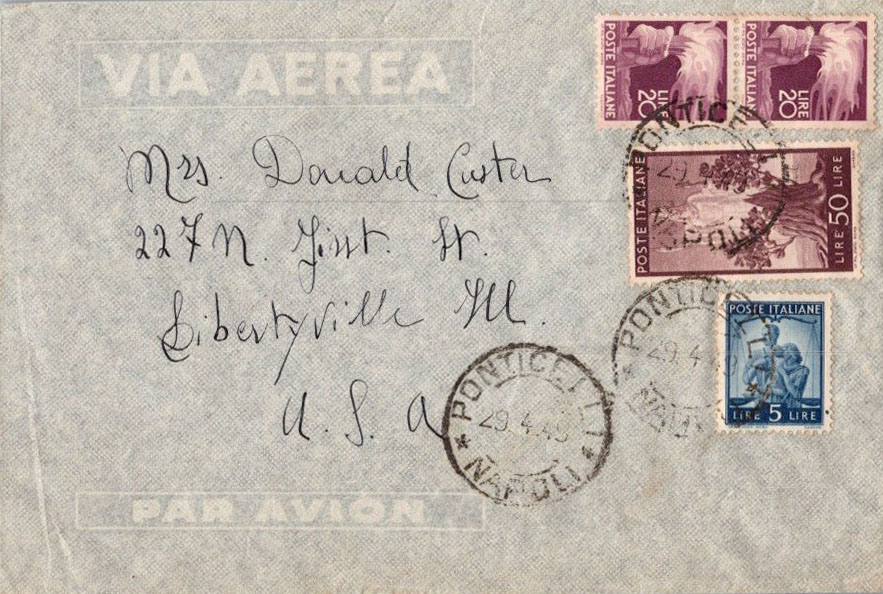 VIA AEREA
POSTE ITALIANE
LIRE 20
POSTE ITALIANE
LIRE 20
PONTICELLI
29.4.49
NAPOLI
POSTE ITALIANE
LIRE 50 LIRE
Mrs. Donald Custer
227 N. First. St.
Libertyville Ill.
U. S. A
PONTICELLI
29.4.49
NAPOLI
POSTE ITALIANE
LIRE 5 LIRE
PONTICELLI
29.4.49
NAPOLI
PAR AVION